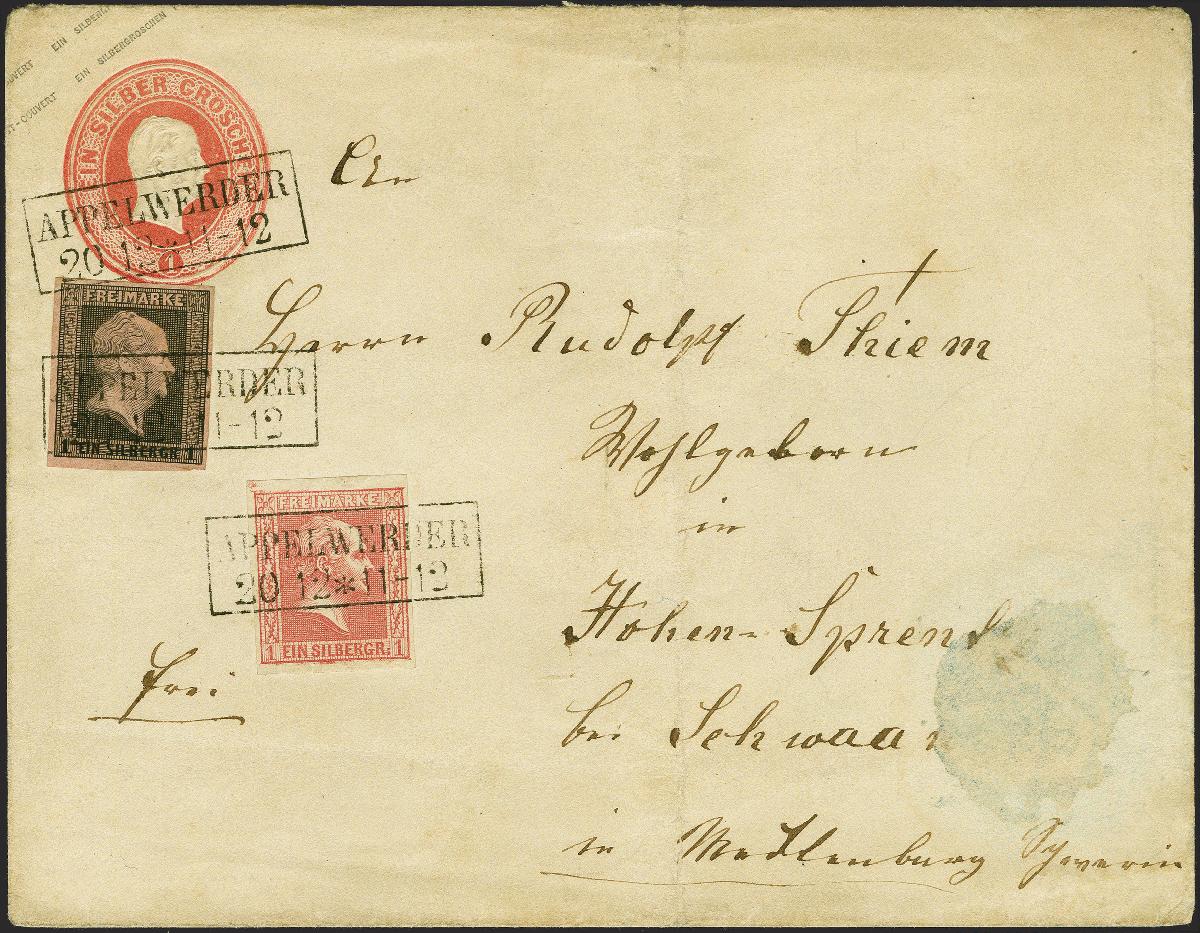 EIN SILBERGROSCHEN
EIN SILBER GROSCHEN
1
APPELWERDER
20 12*11-12
FREIMARKE
1 EIN SILBERGR. 1
APPELWERDER
12 11-12
FREIMARKE
1 EIN SILBERGR. 1
APPELWERDER
20 12*11-12
An
Herrn Rudolph Thiem
Wohlgeborn
in
Hohen-Spren
bei Schwaan
frei
in Mecklenburg Schwerin